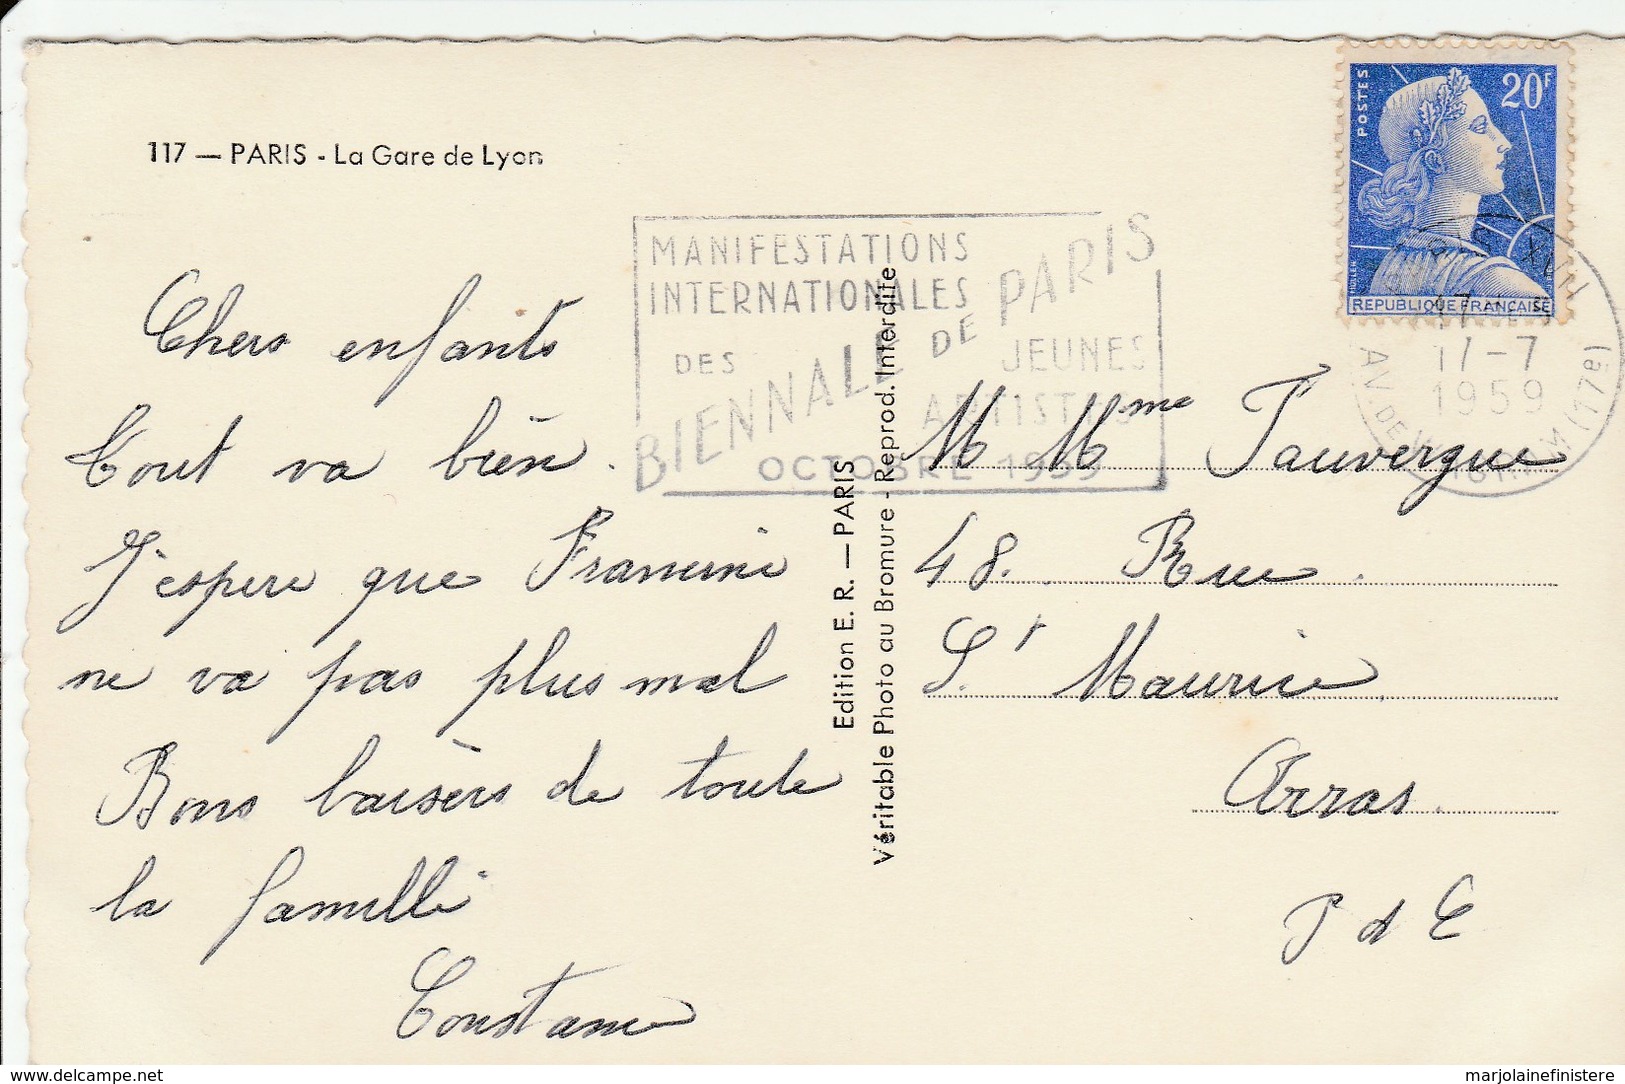 117 — PARIS - La Gare de Lyon
MANIFESTATIONS
INTERNATIONALES
DES
BIENNALE DE PARIS
JEUNES
ARTISTES
OCTOBRE 1959
POSTES
20F
REPUBLIQUE FRANÇAISE
17-7
1959
AV. DE (17e)
Chers enfants
Tout va bien.
J'espere que Francine
ne va pas plus mal
Bons baisers de toute
la famille
Constance
Edition E. R. — PARIS
Véritable Photo au Bromure - Reprod. Interdite
M Mme Tauvergue
48. Rue.
St Maurice
Arras.
P d C
www.delcampe.net
marjolainefinistere